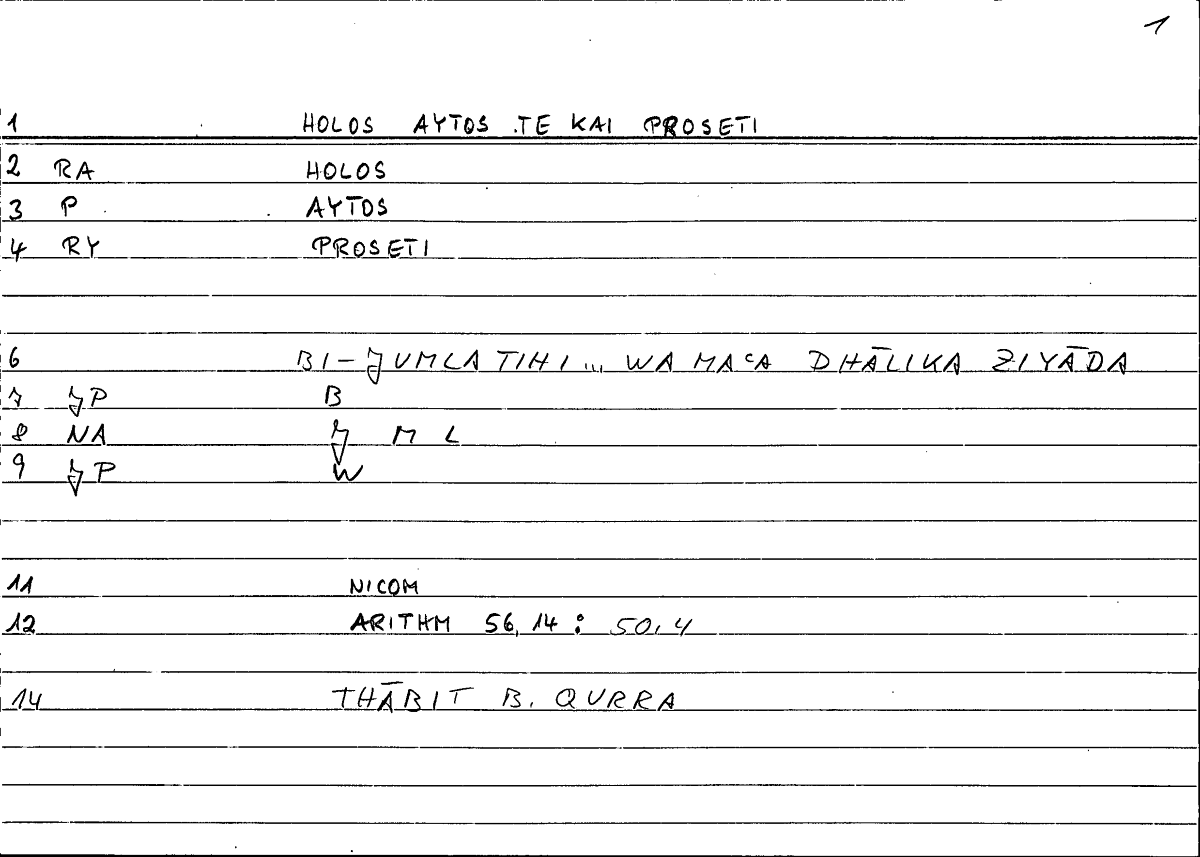 1
1 HOLOS AYTOS TE KAI PROSETI
2 RA HOLOS
3 P AYTOS
4 RY PROSETI
6 BI-JUMLATIHI... WA MAʿA DHĀLIKA ZIYĀDA
7 JP B
8 NA J M L
9 JP W
11 NICOM
12 ARITHM 56,14 : 50,4
14 THĀBIT B. QURRA